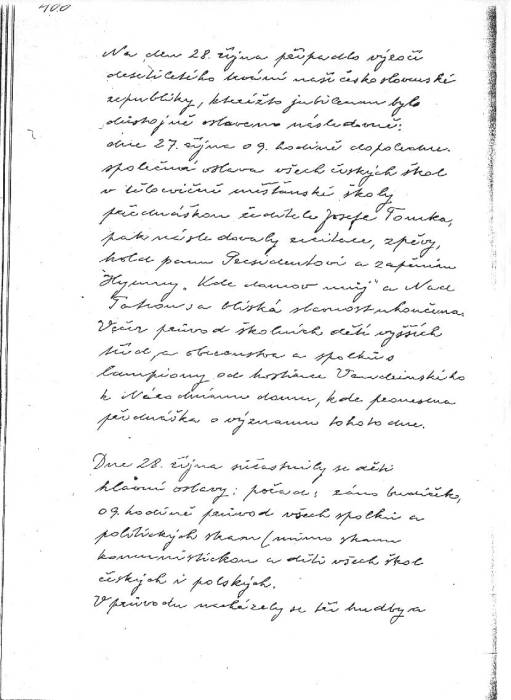 400
Na den 28. října připadlo výročí
desítiletého trvání naší československé
republiky, kteréžto jubileum bylo
důstojně oslaveno následovně:
dne 27. října o 9. hodině dopoledne
společná oslava všech českých škol
v tělocvičně měšťanské školy
přednáškou ředitele Josefa Tomka,
pak následovaly recitace, zpěvy,
hold panu Presidentovi a zapěním
Hymny „Kde domov můj" a Nad
Tatrou sa blíská slavnost ukončena.
Večer průvod školních dětí vyšších
tříd, a obecenstva a spolků s
lampiony od hostince
k Národnímu domu, kde pronesena
přednáška o významu tohoto dne.
Dne 28. října súčastnily se děti
hlavní oslavy: pořad: ráno budíček,
o 9. hodině průvod všech spolků a
politických stran (mimo stranu
komunistickou a dětí všech škol
českých i polských.
V průvodu nacházely se tři hudby a